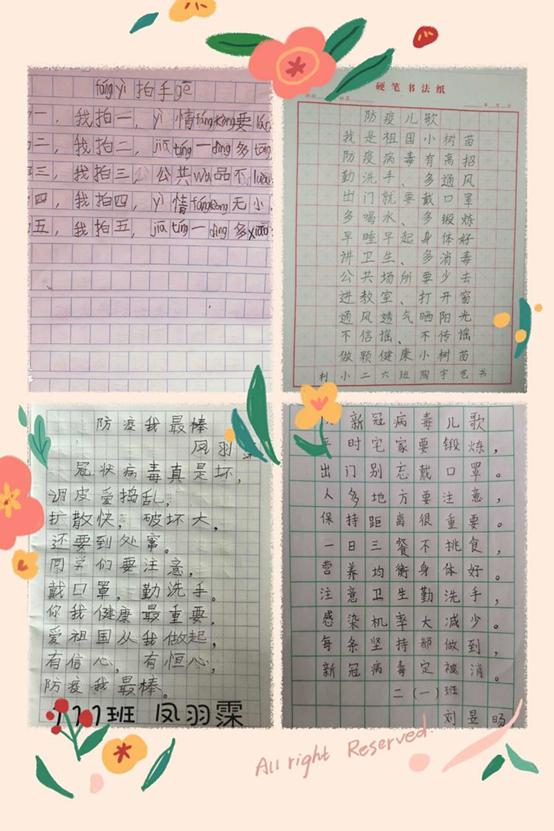 fáng yì 拍手gē
一，我拍一，yì 情fáng kòng要
二，我拍二，jiā tíng 一 dìng 多
三，我拍三，公共wù品不
四，我拍四，yì 情fáng kòng无小
五，我拍五，jiā tíng 一 dìng 多
硬笔书法纸
防疫儿歌
我是祖国小树苗
防疫病毒有高招
勤洗手、多通风
出门就要戴口罩
多喝水、多锻炼
早睡早起身体好
讲卫生、多消毒
公共场所要少去
进教室、打开窗
通风透气晒阳光
不信谣、不传谣
做颗健康小树苗
利小二六班 陶宇艺 书
防疫我最棒
凤羽霂
冠状病毒真是坏，
调皮爱捣乱；
扩散快，破坏大，
还要到处窜。
同学们要注意，
戴口罩，勤洗手。
你我健康最重要，
爱祖国从我做起，
有信心，有恒心，
防疫我最棒。
班 凤羽霂
新冠病毒儿歌
平时宅家要锻炼，
出门别忘戴口罩。
人多地方要注意，
保持距离很重要。
一日三餐不挑食，
营养均衡身体好。
注意卫生勤洗手，
感染机率大减少。
每条坚持都做到，
新冠病毒定被消。
二（一）班
刘昱旸
All right Reserved.